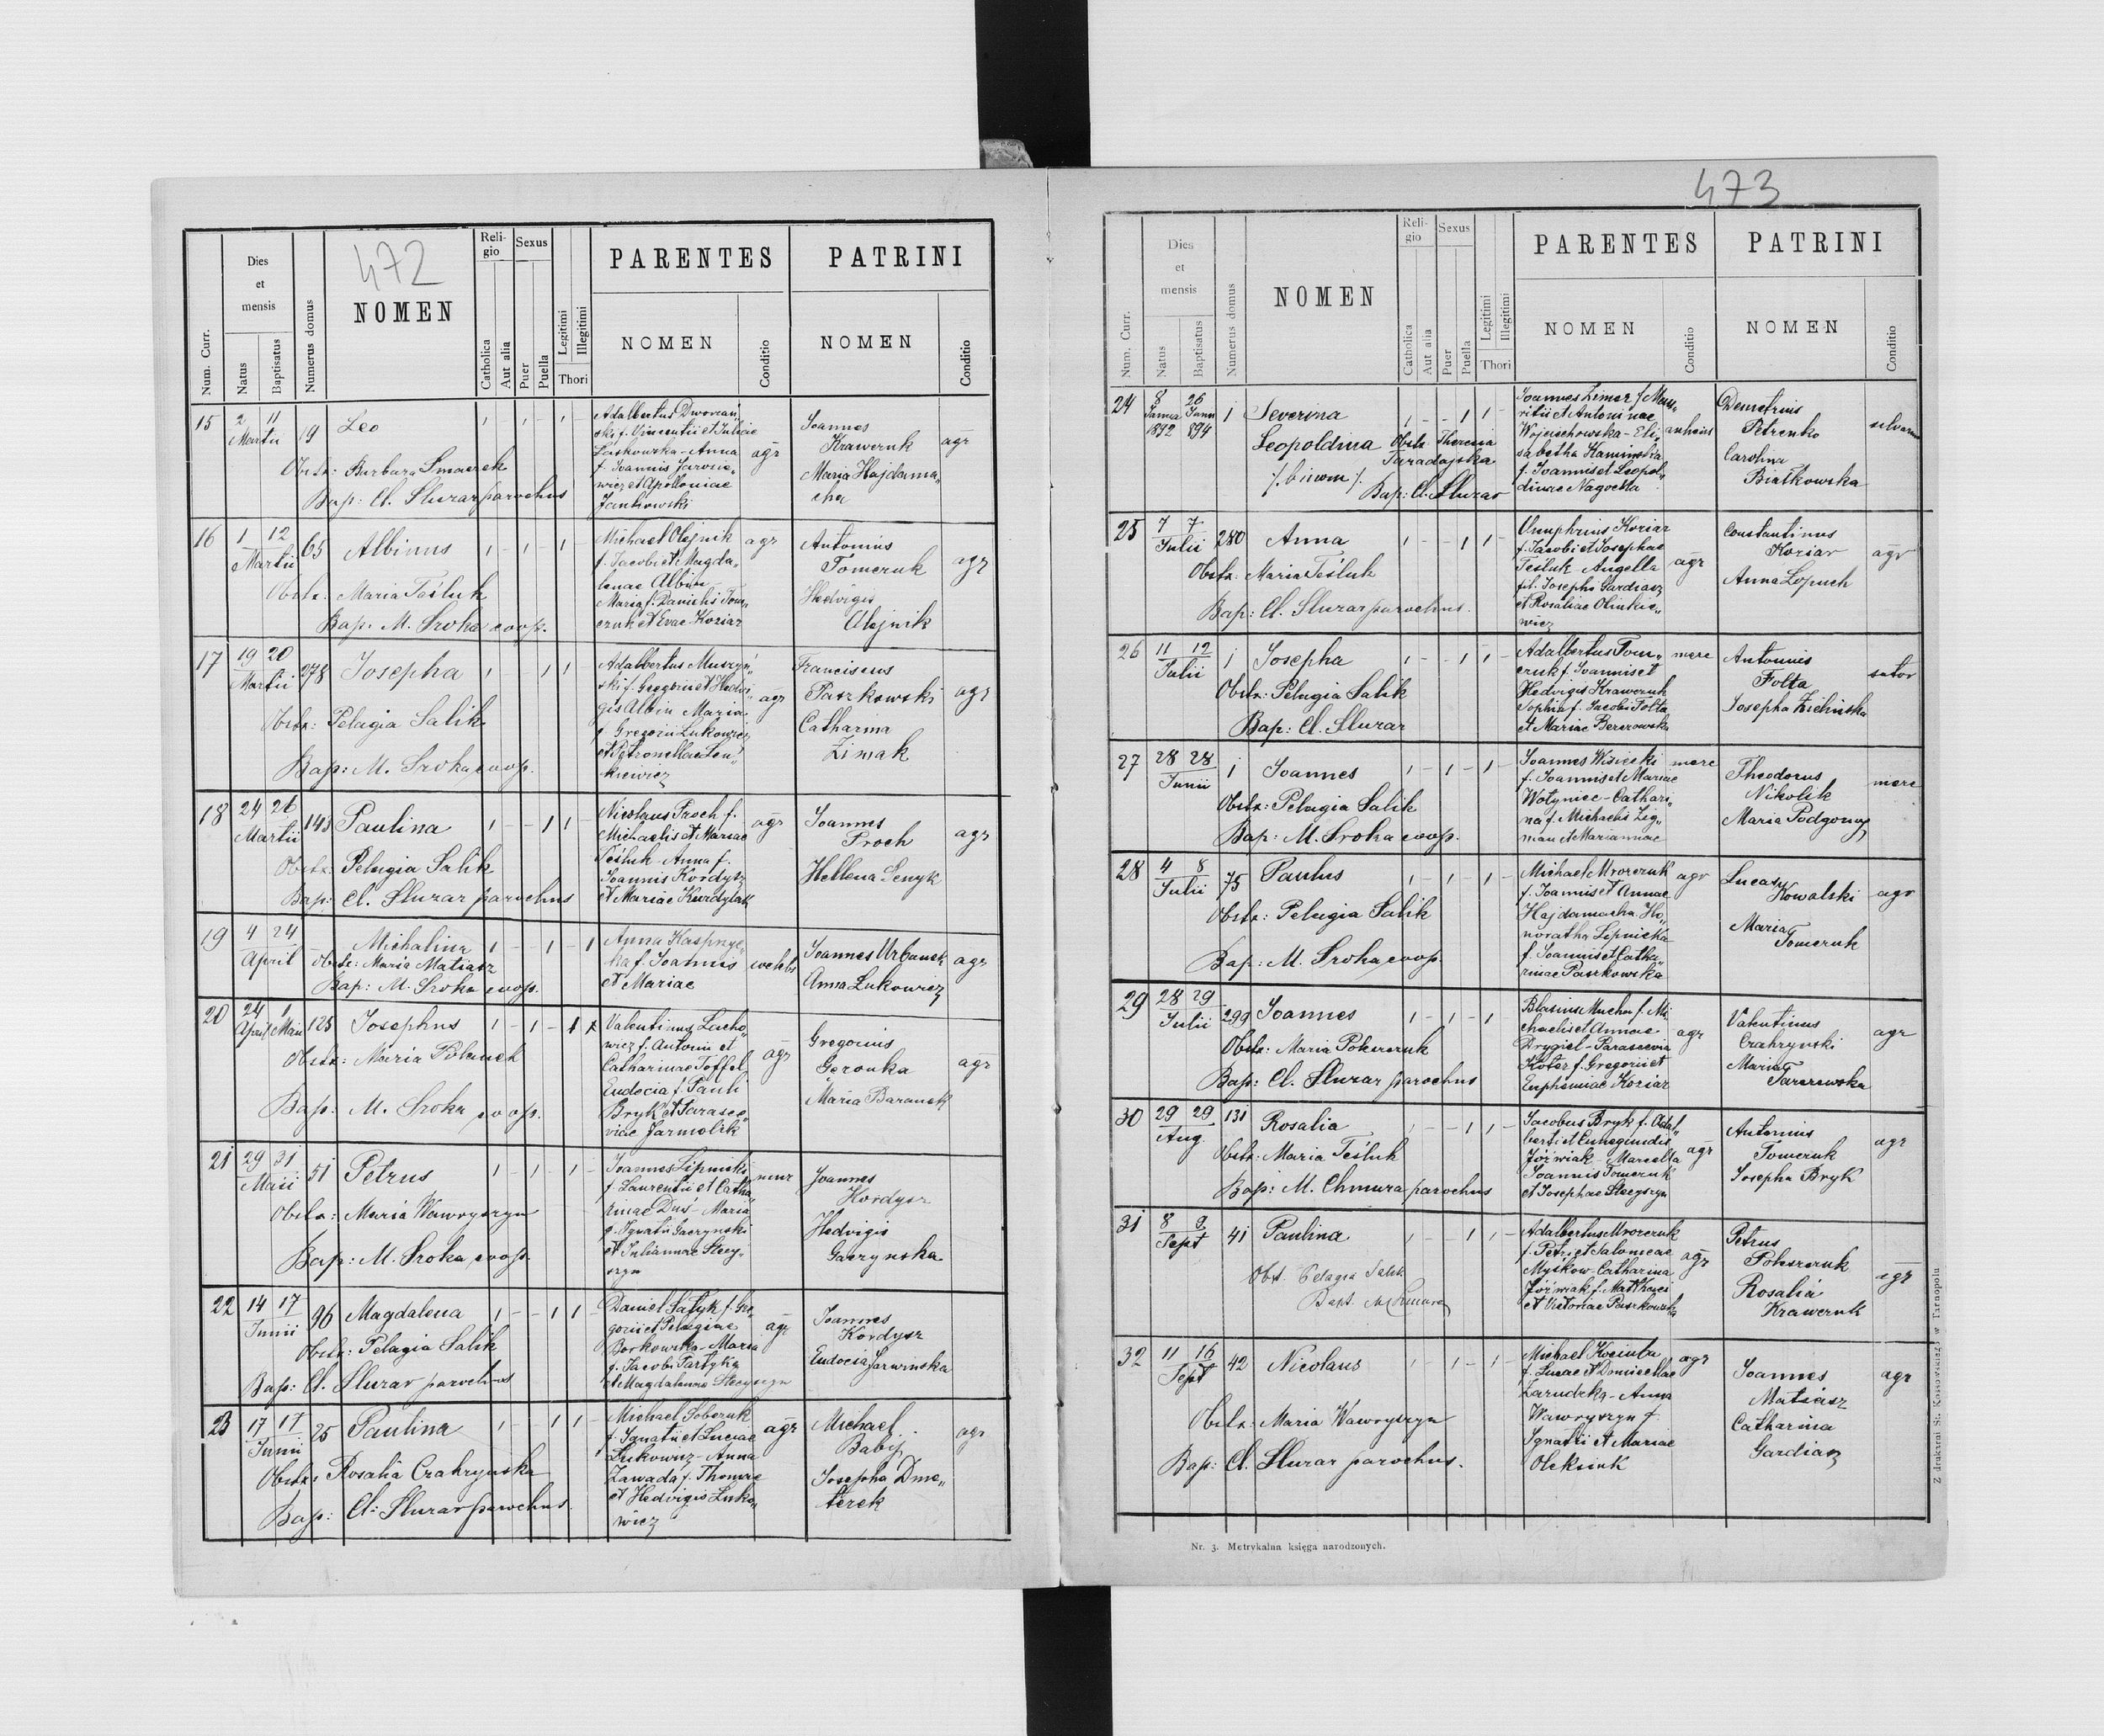 472
Num. Curr.
Dies et mensis
Natus
Baptisatus
Numerus domus
NOMEN
Religio
Catholica
Aut alia
Sexus
Puer
Puella
Legitimi
Illegitimi
Thori
PARENTES
NOMEN
Conditio
PATRINI
NOMEN
Conditio
15 2 11 Martii 19 Leo
Obstx: Barbara Smaczek
Bap: Cl. Sluzar parochus
Adalbertus Dworzań„
ski f. Vincentii et Juliae
Laskowska - Anna agr
f. Joannis Jarosie„
wicz et Apolloniae
Jankowski
Joannes
Krawczuk agr
Maria Hajdama„
cha
16 1 12 Martii 65 Albinus
Obstx. Maria Teśluk
Bap. M. Sroka coop.
Michael Olejnik agr
f. Jacobi et Magda„
lenae Albin
Maria f. Danielis Tom„
czuk et Evae Koziar
Antonius
Tomczuk agr
Hedvigis
Olejnik
17 19 20 Martii 278 Josepha
Obstx: Pelagia Salik
Bap: M. Sroka coop.
Adalbertus Muszyń„
ski f. Gregorii et Hedvi„
gis Albin Maria agr
f Gregorii Lukowicz
et Petronellae Sen„
kiewicz
Franciscus
Paszkowski agr
Catharina
Zimak
18 24 26 Martii 143 Paulina
Obstx: Pelagia Salik
Bap: Cl. Sluzar parochus
Nicolaus Proch f. agr
Michaelis et Mariae
Teśluk - Anna f.
Joannis Kordysz
et Mariae Kurdylak
Joannes
Proch agr
Hellena Senyk
19 4 24 April Michalina
Obstx: Maria Matiasz
Bap: M. Sroka coop.
Anna Kaspryc„
ka f. Joannis
et Mariae
Joannes Urbanek agr
Anna Lukowicz
20 24 April 1 Maii 125 Josephus
Obstx: Maria Polanek
Bap: M. Sroka coop.
Valentinus Lacho„
wicz f. Antonii et
Catharinae Toffel agr
Eudocia f. Pauli
Bryk et Parasce„
viae Jarmolik
Gregorius
Geronka agr
Maria Baranek
21 29 31 Maii 51 Petrus
Obstx: Maria Wawryszyn
Bap: M. Sroka coop.
Joannes Lipnicki mur
f. Laurentii et Catha„
rinae Duś - Maria
f. Ignatii Gaczynski
et Juliannae Stecy„
szyn
Joannes
Kordysz
Hedvigis
Gaczynska
22 14 17 Junii 96 Magdalena
Obstx: Pelagia Salik
Bap: Cl. Sluzar parochus
Daniel Satyk f. Gre„
gorii et Pelagiae agr
Borkowska - Maria
f. Jacobi Partyka
et Magdalenae Stecyszyn
Joannes
Kordysz
Eudocia Jarwinska
23 17 17 Junii 25 Paulina
Obstx: Rosalia Czahrynska
Bap: Cl. Sluzar parochus
Michael Soboruk agr
f. Ignatii et Luciae
Lukowicz - Anna
Zawada f. Thomae
et Hedvigis Luko„
wicz
Michael
Babij agr
Josepha Dme„
terek
473
Num. Curr.
Dies et mensis
Natus
Baptisatus
Numerus domus
NOMEN
Religio
Catholica
Aut alia
Sexus
Puer
Puella
Legitimi
Illegitimi
Thori
PARENTES
NOMEN
Conditio
PATRINI
NOMEN
Conditio
24 8 Janua 1892 26 Janu 894 1 Severina
Leopoldina
/. binom /.
Obstx Theresia
Taradajska
Bap: Cl. Sluzar
Joannes Zimer f Mau„
ritii et Antoninae
Wojciechowska - Eli„
sabetha Kaminska
f. Joannis et Leopol„
dinae Nagocka
Demetrius
Petrenko
Carolina
Białkowska
25 7 7 Julii 280 Anna
Obstx. Maria Teśluk
Bap: Cl. Sluzar parochus.
Onuphrius Koziar
f. Jacobi et Josephae
Teśluk Angella agr
fil. Josephi Gardiasz
et Rosaliae Olinkie„
wicz
Constantinus
Koziar agr
Anna Lopuch
26 11 12 Julii 1 Josepha
Obstx: Pelagia Salik
Bap: Cl. Sluzar
Adalbertus Tom„ merc
czuk f. Joannis et
Hedvigis Krawczuk
Sophia f. Jacobi Folta
et Mariae Berezowska
Antonius
Folta sutor
Josepha Zielinska
27 28 28 Junii 1 Joannes
Obstx: Pelagia Salik
Bap: M. Sroka coop.
Joannes Wisicski merc
f. Joannis et Mariae
Wołyniec - Cathari„
na f. Michaelis Zeg„
man et Mariannae
Theodorus
Nikolik merc
Maria Podgorny
28 4 8 Julii 75 Paulus
Obstx: Pelagia Salik
Bap: M. Sroka coop.
Michael Mroczuk agr
f. Joannis et Annae
Hajdamacha Ho„
noratha Lipnicka
f. Joannis et Catha„
rinae Paszkowska
Lucas
Kowalski agr
Maria
Tomczuk
29 28 29 Julii 299 Joannes
Obstx: Maria Pokszczuk
Bap: Cl. Sluzar parochus
Blasius Mucha f. Mi„
chaelis et Annae agr
Drygiel - Parascevia
Koter f. Gregorii et
Euphemiae Koziar
Valentinus
Czahrynski agr
Maria
Tarczewska
30 29 29 Aug. 131 Rosalia
Obstx: Maria Teśluk
Bap: M. Chmura parochus
Jacobus Bryk f. Adal„
berti et Cunegundis
Jóźwiak - Marcella agr
Joannis Tomczuk
et Josephae Stecyszyn
Antonius
Tomczuk agr
Josepha Bryk
31 8 9 Sept 41 Paulina
Obst. Pelagia Salik
Bapt. M Chmura
Adalbertus Mroczuk
f. Petri et Salomeae
Myśkow - Catharina agr
Jóźwiak f. Matthaei
et Victoriae Paszkowska
Petrus
Pokszczuk
Rosalia agr
Krawczuk
32 11 16 Sept 42 Nicolaus
Obstx: Maria Wawryszyn
Bap: Cl. Sluzar parochus.
Michael Kociuba agr
f. Lucae et Domicellae
Zarudzka - Anna
Wawryszyn f.
Ignatii et Mariae
Oleksiuk
Joannes
Matiasz agr
Catharina
Gardiasz
Nr. 3. Metrykalna księga narodzonych.
Z drukarni St. Kossowskiego w Tarnopolu.